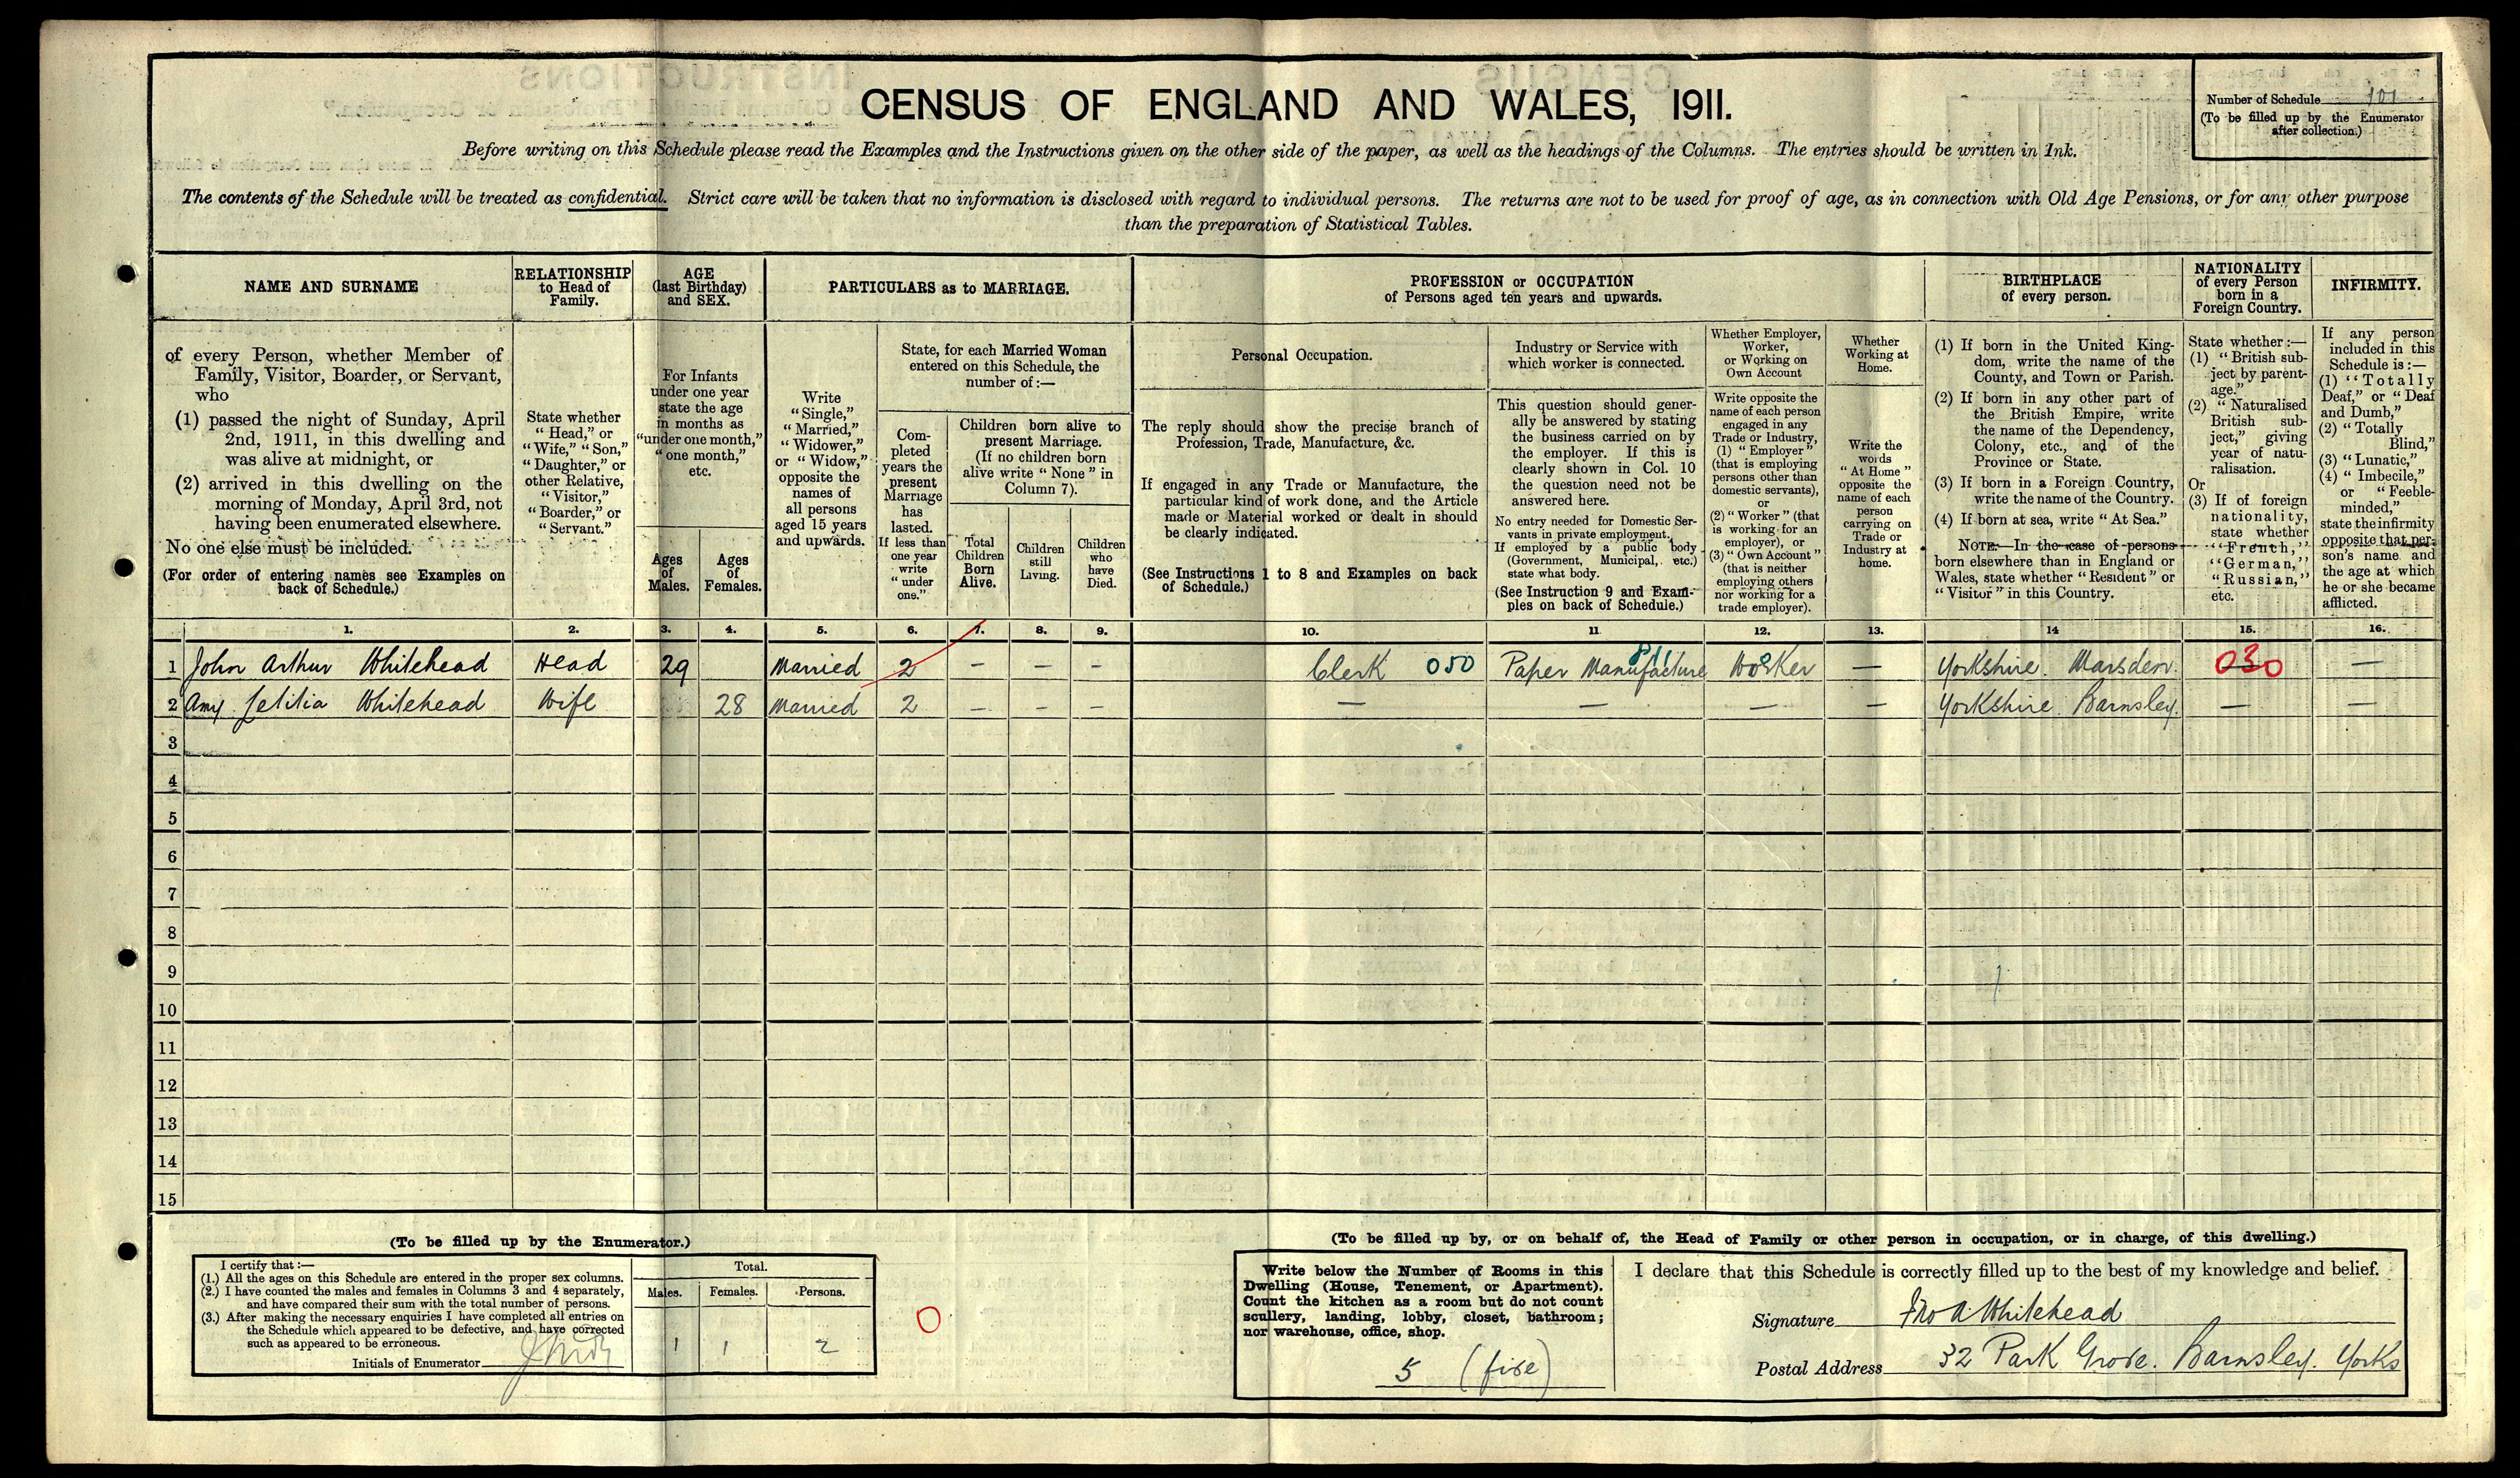 CENSUS OF ENGLAND AND WALES, 1911.
Number of Schedule 101
(To be filled up by the Enumerator
after collection.)
Before writing on this Schedule please read the Examples and the Instructions given on the other side of the paper, as well as the headings of the Columns. The entries should be written in Ink.
The contents of the Schedule will be treated as confidential. Strict care will be taken that no information is disclosed with regard to individual persons. The returns are not to be used for proof of age, as in connection with Old Age Pensions, or for any other purpose
than the preparation of Statistical Tables.
NAME AND SURNAME
of every Person, whether Member of
Family, Visitor, Boarder, or Servant,
who
(1) passed the night of Sunday, April
2nd, 1911, in this dwelling and
was alive at midnight, or
(2) arrived in this dwelling on the
morning of Monday, April 3rd, not
having been enumerated elsewhere.
No one else must be included.
(For order of entering names see Examples on
back of Schedule.)
RELATIONSHIP
to Head of
Family.
State whether
"Head," or
"Wife," "Son,"
"Daughter," or
other Relative,
"Visitor,"
"Boarder," or
"Servant."
AGE
(last Birthday)
and SEX.
For Infants
under one year
state the age
in months as
"under one month,"
"one month,"
etc.
Ages
of
Males.
Ages
of
Females.
PARTICULARS as to MARRIAGE.
Write
"Single,"
"Married,"
"Widower,"
or "Widow,"
opposite the
names of
all persons
aged 15 years
and upwards.
State, for each Married Woman
entered on this Schedule, the
number of :—
Com-
pleted
years the
present
Marriage
has
lasted.
If less than
one year
write
"under
one."
Children born alive to
present Marriage.
(If no children born
alive write "None" in
Column 7).
Total
Children
Born
Alive.
Children
still
Living.
Children
who
have
Died.
PROFESSION or OCCUPATION
of Persons aged ten years and upwards.
Personal Occupation.
The reply should show the precise branch of
Profession, Trade, Manufacture, &c.
If engaged in any Trade or Manufacture, the
particular kind of work done, and the Article
made or Material worked or dealt in should
be clearly indicated.
(See Instructions 1 to 8 and Examples on back
of Schedule.)
Industry or Service with
which worker is connected.
This question should gener-
ally be answered by stating
the business carried on by
the employer. If this is
clearly shown in Col. 10
the question need not be
answered here.
No entry needed for Domestic Ser-
vants in private employment.
If employed by a public body
(Government, Municipal, etc.)
state what body.
(See Instruction 9 and Exam-
ples on back of Schedule.)
Whether Employer,
Worker,
or Working on
Own Account
Write opposite the
name of each person
engaged in any
Trade or Industry,
(1) "Employer"
(that is employing
persons other than
domestic servants),
or
(2) "Worker" (that
is working for an
employer), or
(3) "Own Account"
(that is neither
employing others
nor working for a
trade employer).
Whether
Working at
Home.
Write the
words
"At Home"
opposite the
name of each
person
carrying on
Trade or
Industry at
home.
BIRTHPLACE
of every person.
(1) If born in the United King-
dom, write the name of the
County, and Town or Parish.
(2) If born in any other part of
the British Empire, write
the name of the Dependency,
Colony, etc., and of the
Province or State.
(3) If born in a Foreign Country,
write the name of the Country.
(4) If born at sea, write "At Sea."
NOTE.—In the case of persons
born elsewhere than in England or
Wales, state whether "Resident" or
"Visitor" in this Country.
NATIONALITY
of every Person
born in a
Foreign Country.
State whether :—
(1) "British sub-
ject by parent-
age."
(2) "Naturalised
British sub-
ject," giving
year of natu-
ralisation.
Or
(3) If of foreign
nationality,
state whether
"French,"
"German,"
"Russian,"
etc.
INFIRMITY.
If any person
included in this
Schedule is :—
(1) "Totally
Deaf," or "Deaf
and Dumb,"
(2) "Totally
Blind,"
(3) "Lunatic,"
(4) "Imbecile,"
or "Feeble-
minded,"
state the infirmity
opposite that per-
son's name and
the age at which
he or she became
afflicted.
1. 2. 3. 4. 5. 6. 7. 8. 9. 10. 11 12. 13. 14 15. 16.
1 John Arthur Whitehead Head 29 Married 2 — — — Clerk 050 Paper Manufacture 811 Worker — Yorkshire Marsden 030 —
2 Amy Letitia Whitehead Wife 28 Married 2 — — — — — — — Yorkshire Barnsley. — —
3
4
5
6
7
8
9
10
11
12
13
14
15
(To be filled up by the Enumerator.)
I certify that :—
(1.) All the ages on this Schedule are entered in the proper sex columns.
(2.) I have counted the males and females in Columns 3 and 4 separately,
and have compared their sum with the total number of persons.
(3.) After making the necessary enquiries I have completed all entries on
the Schedule which appeared to be defective, and have corrected
such as appeared to be erroneous.
Initials of Enumerator
Total.
Males. Females. Persons.
1 1 2
0
(To be filled up by, or on behalf of, the Head of Family or other person in occupation, or in charge, of this dwelling.)
Write below the Number of Rooms in this
Dwelling (House, Tenement, or Apartment).
Count the kitchen as a room but do not count
scullery, landing, lobby, closet, bathroom;
nor warehouse, office, shop.
5 (five)
I declare that this Schedule is correctly filled up to the best of my knowledge and belief.
Signature Jno A Whitehead
Postal Address 32 Park Grove. Barnsley. Yorks